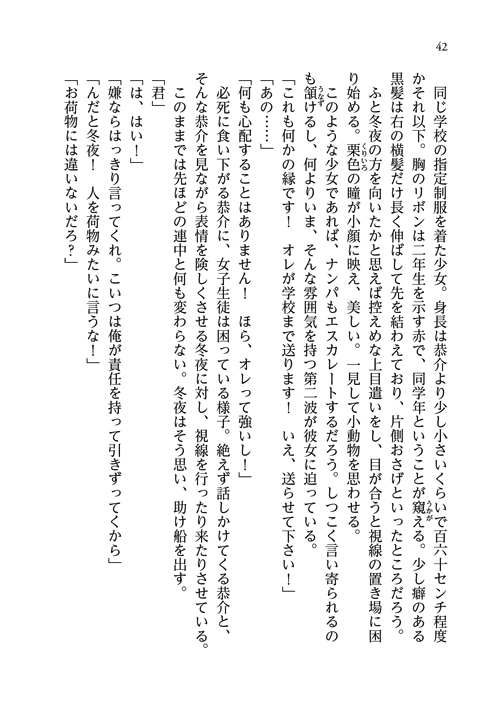 42
同じ学校の指定制服を着た少女。身長は恭介より少し小さいくらいで百六十センチ程度
かそれ以下。胸のリボンは二年生を示す赤で、同学年ということが窺える。少し癖のある
黒髪は右の横髪だけ長く伸ばして先を結わえており、片側おさげといったところだろう。
ふと冬夜の方を向いたかと思えば控えめな上目遣いをし、目が合うと視線の置き場に困
り始める。栗色の瞳が小顔に映え、美しい。一見して小動物を思わせる。
このような少女であれば、ナンパもエスカレートするだろう。しつこく言い寄られるの
も頷けるし、何よりいま、そんな雰囲気を持つ第二波が彼女に迫っている。
「これも何かの縁です！　オレが学校まで送ります！　いえ、送らせて下さい！」
「あの……」
「何も心配することはありません！　ほら、オレって強いし！」
必死に食い下がる恭介に、女子生徒は困っている様子。絶えず話しかけてくる恭介と、
そんな恭介を見ながら表情を険しくさせる冬夜に対し、視線を行ったり来たりさせている。
このままでは先ほどの連中と何も変わらない。冬夜はそう思い、助け船を出す。
「君」
「は、はい！」
「嫌ならはっきり言ってくれ。こいつは俺が責任を持って引きずってくから」
「んだと冬夜！　人を荷物みたいに言うな！」
「お荷物には違いないだろ？」